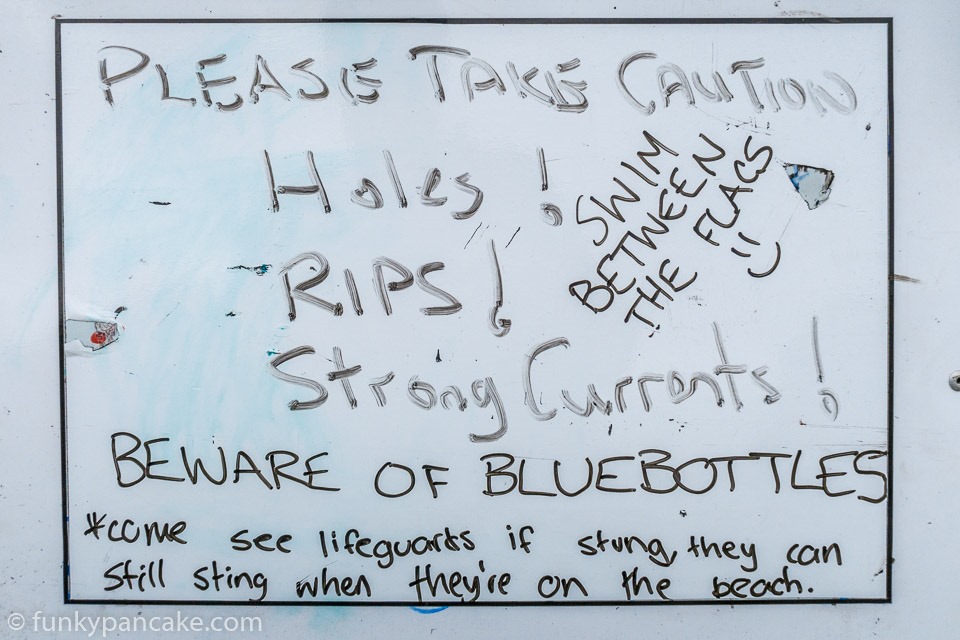 PLEASE TAKE CAUTION
Holes!
RIPS!
Strong Currents!
SWIM
BETWEEN
THE FLAGS
:)
BEWARE OF BLUEBOTTLES
*come see lifeguards if stung, they can
still sting when they're on the beach.
© funkypancake.com